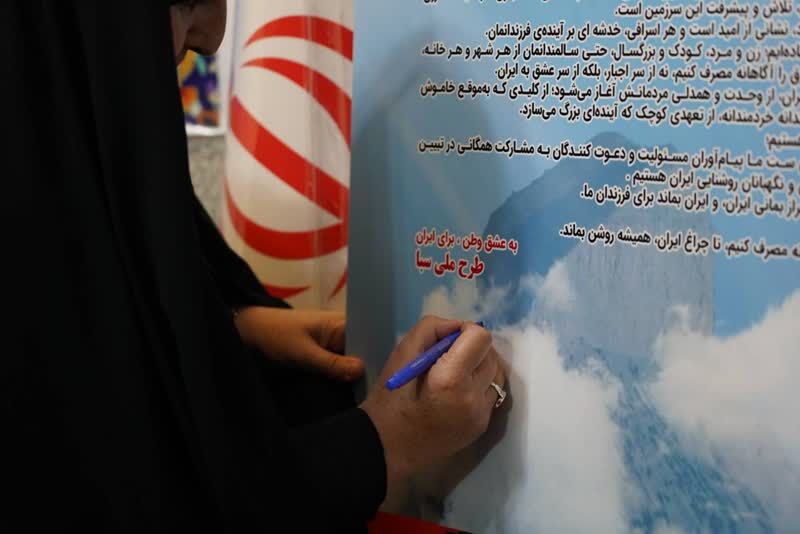 تلاش و پیشرفت این سرزمین است.
نشانی از امید است و هر اسرافی، خدشه ای بر آینده‌ی فرزندانمان.
زن و مرد، کودک و بزرگسال، حتـی سـالمندانمان از هـر شـهر و هـر خانه،
را آگاهانه مصرف کنیم، نه از سر اجبار، بلکه از سر عشق به ایران.
از وحدت و همدلـی مردمانـش آغـاز می‌شـود؛ از کلیـدی کـه به‌موقع خاموش
خردمندانه، از تعهدی کوچک که آینده‌ای بزرگ می‌سازد.
ما پیـام‌آوران مسـئولیت و دعـوت کننـدگان بـه مشـارکت همگانـی در تبییـن
و نگهبانان روشنایی ایران هستیم .
بمانی ایران، و ایران بماند برای فرزندان ما.
مصرف کنیم، تا چراغ ایران، همیشه روشن بماند.
به عشق وطن ، برای ایران
طرح ملی سبا